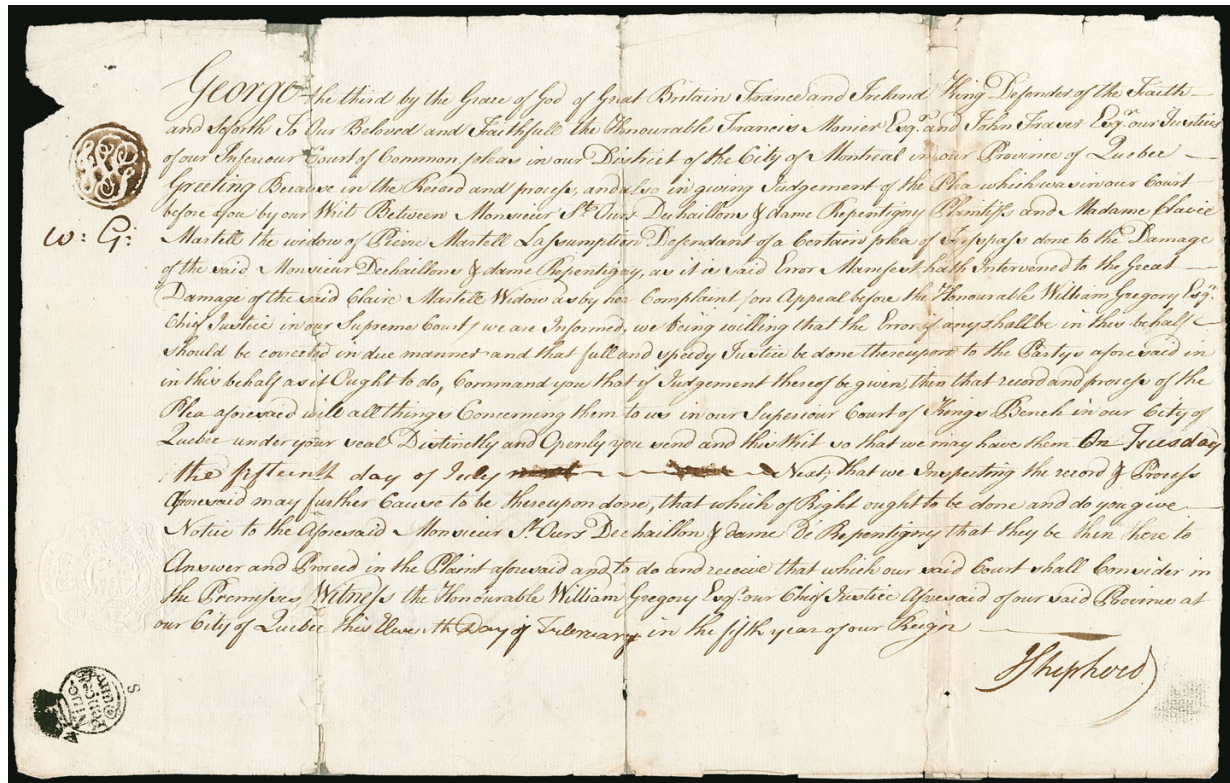 George the third by the Grace of God of Great Britain France and Ireland King Defender of the Faith
and soforth To Our Beloved and Faithfull the Honourable Francis Monier Esqr. and John Fraser Esqr. our Justices
of our Inferiour Court of Common pleas in our District of the City of Montreal in our Province of Quebec
Greeting Because in the Record and process, and also in giving Judgement of the Plea which was in our Court
before you by our Writ Between Monsieur St. Ours Dechaillons & dame Repentigny Plaintiffs and Madame
w: G:
Martell the widow of Pierre Martell Lassumption Defendant of a Certain plea of Trespass done to the Damage
of the said Monsieur Dechaillons & dame Repentigny, as it is said Error Manifest hath Intervened to the Great
Damage of the said Claire Martell Widow as by her Complaint /on Appeal before the Honourable William Gregory Esqr.
Chief Justice in our Supreme Court/ we are Informed, we being willing that the Error if any shall be in this behalf
should be corrected in due manner and that full and speedy Justice be done thereupon to the Partys aforesaid in
in this behalf as it Ought to do, Command you that if Judgement thereof be given, then that record and process of the
Plea aforesaid will all things Concerning them to us in our Superiour Court of Kings Bench in our City of
Quebec under your seal Distinctly and Openly you send and this Writ so that we may have them On Tuesday
the fifteenth day of July Next, that we Inspecting the record & Process
Aforesaid may further Cause to be thereupon done, that which of Right ought to be done and do you give
Notice to the Aforesaid Monsieur St. Ours Dechaillon & dame De Repentigny that they be then there to
Answer and Proceed in the Plaint aforesaid and to do and receive that which our said Court shall Consider in
the Premisses Witness the Honourable William Gregory Esqr. our Chief Justice Aforesaid of our said Province at
our City of Quebec this Day of February in the fifth year of our Reign
JShepherd
S